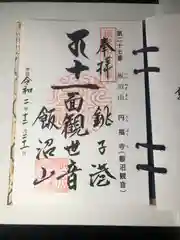 第二十七番 飯沼山 円福寺(飯沼観音)
奉拝
銚子港
十一面観世音
飯沼山
令和二年十二月